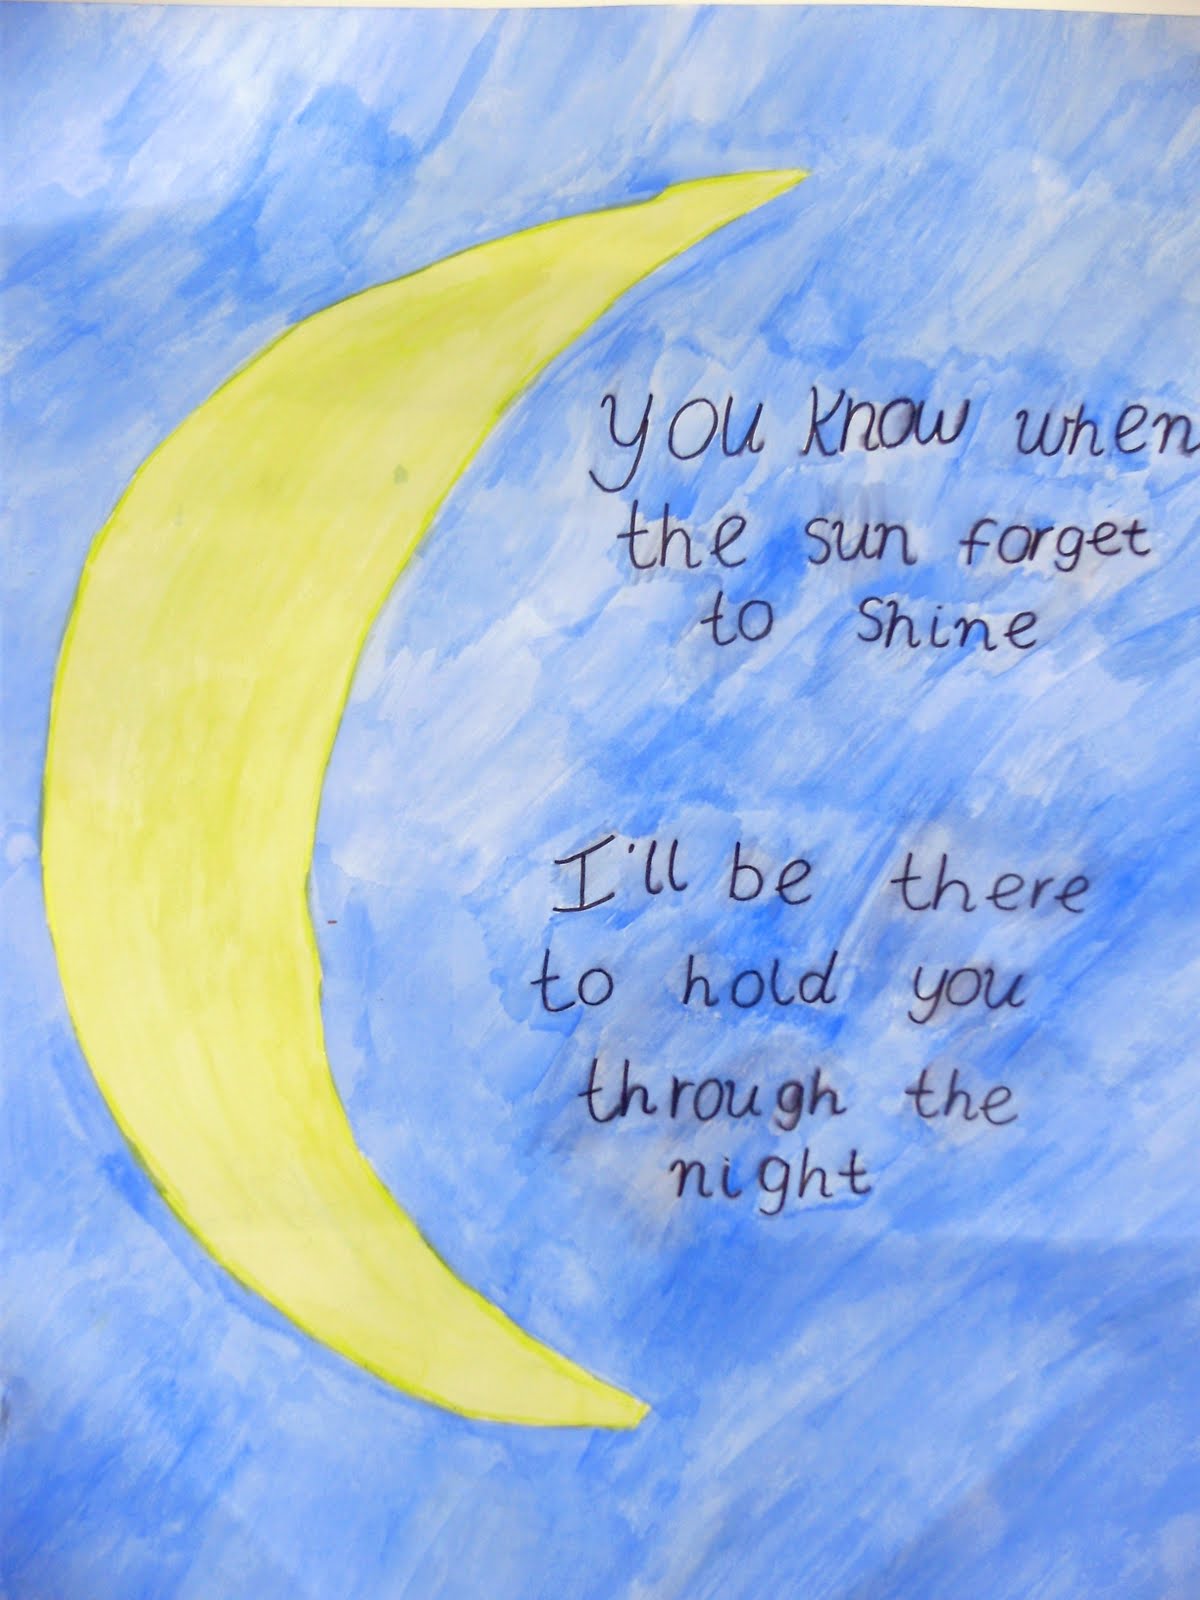 you know when
the sun forget
to shine
I'll be there
to hold you
through the
night